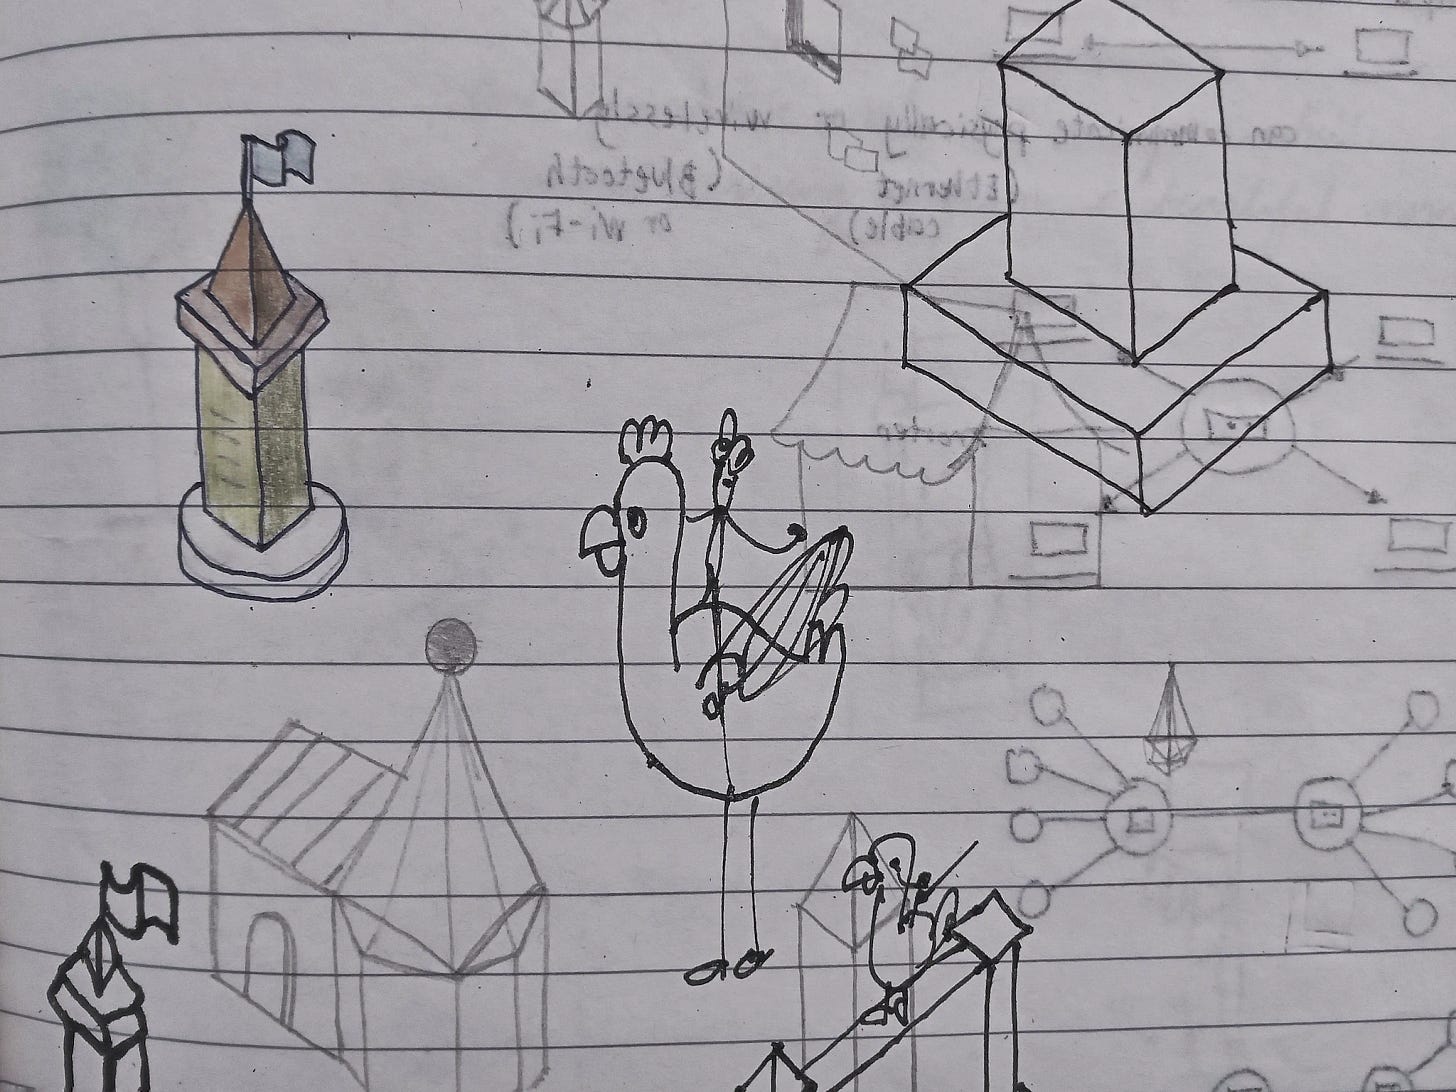 can communicate physically or wirelessly
(Ethernet (Bluetooth
cable) or Wi-Fi)